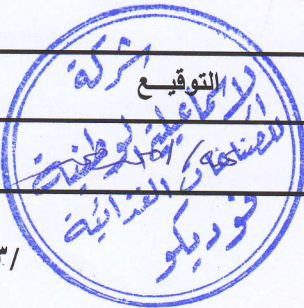 التوقيع
شركة
الاسماعيلية الوطنية
للصناعات الغذائية
فوديكو
/٣